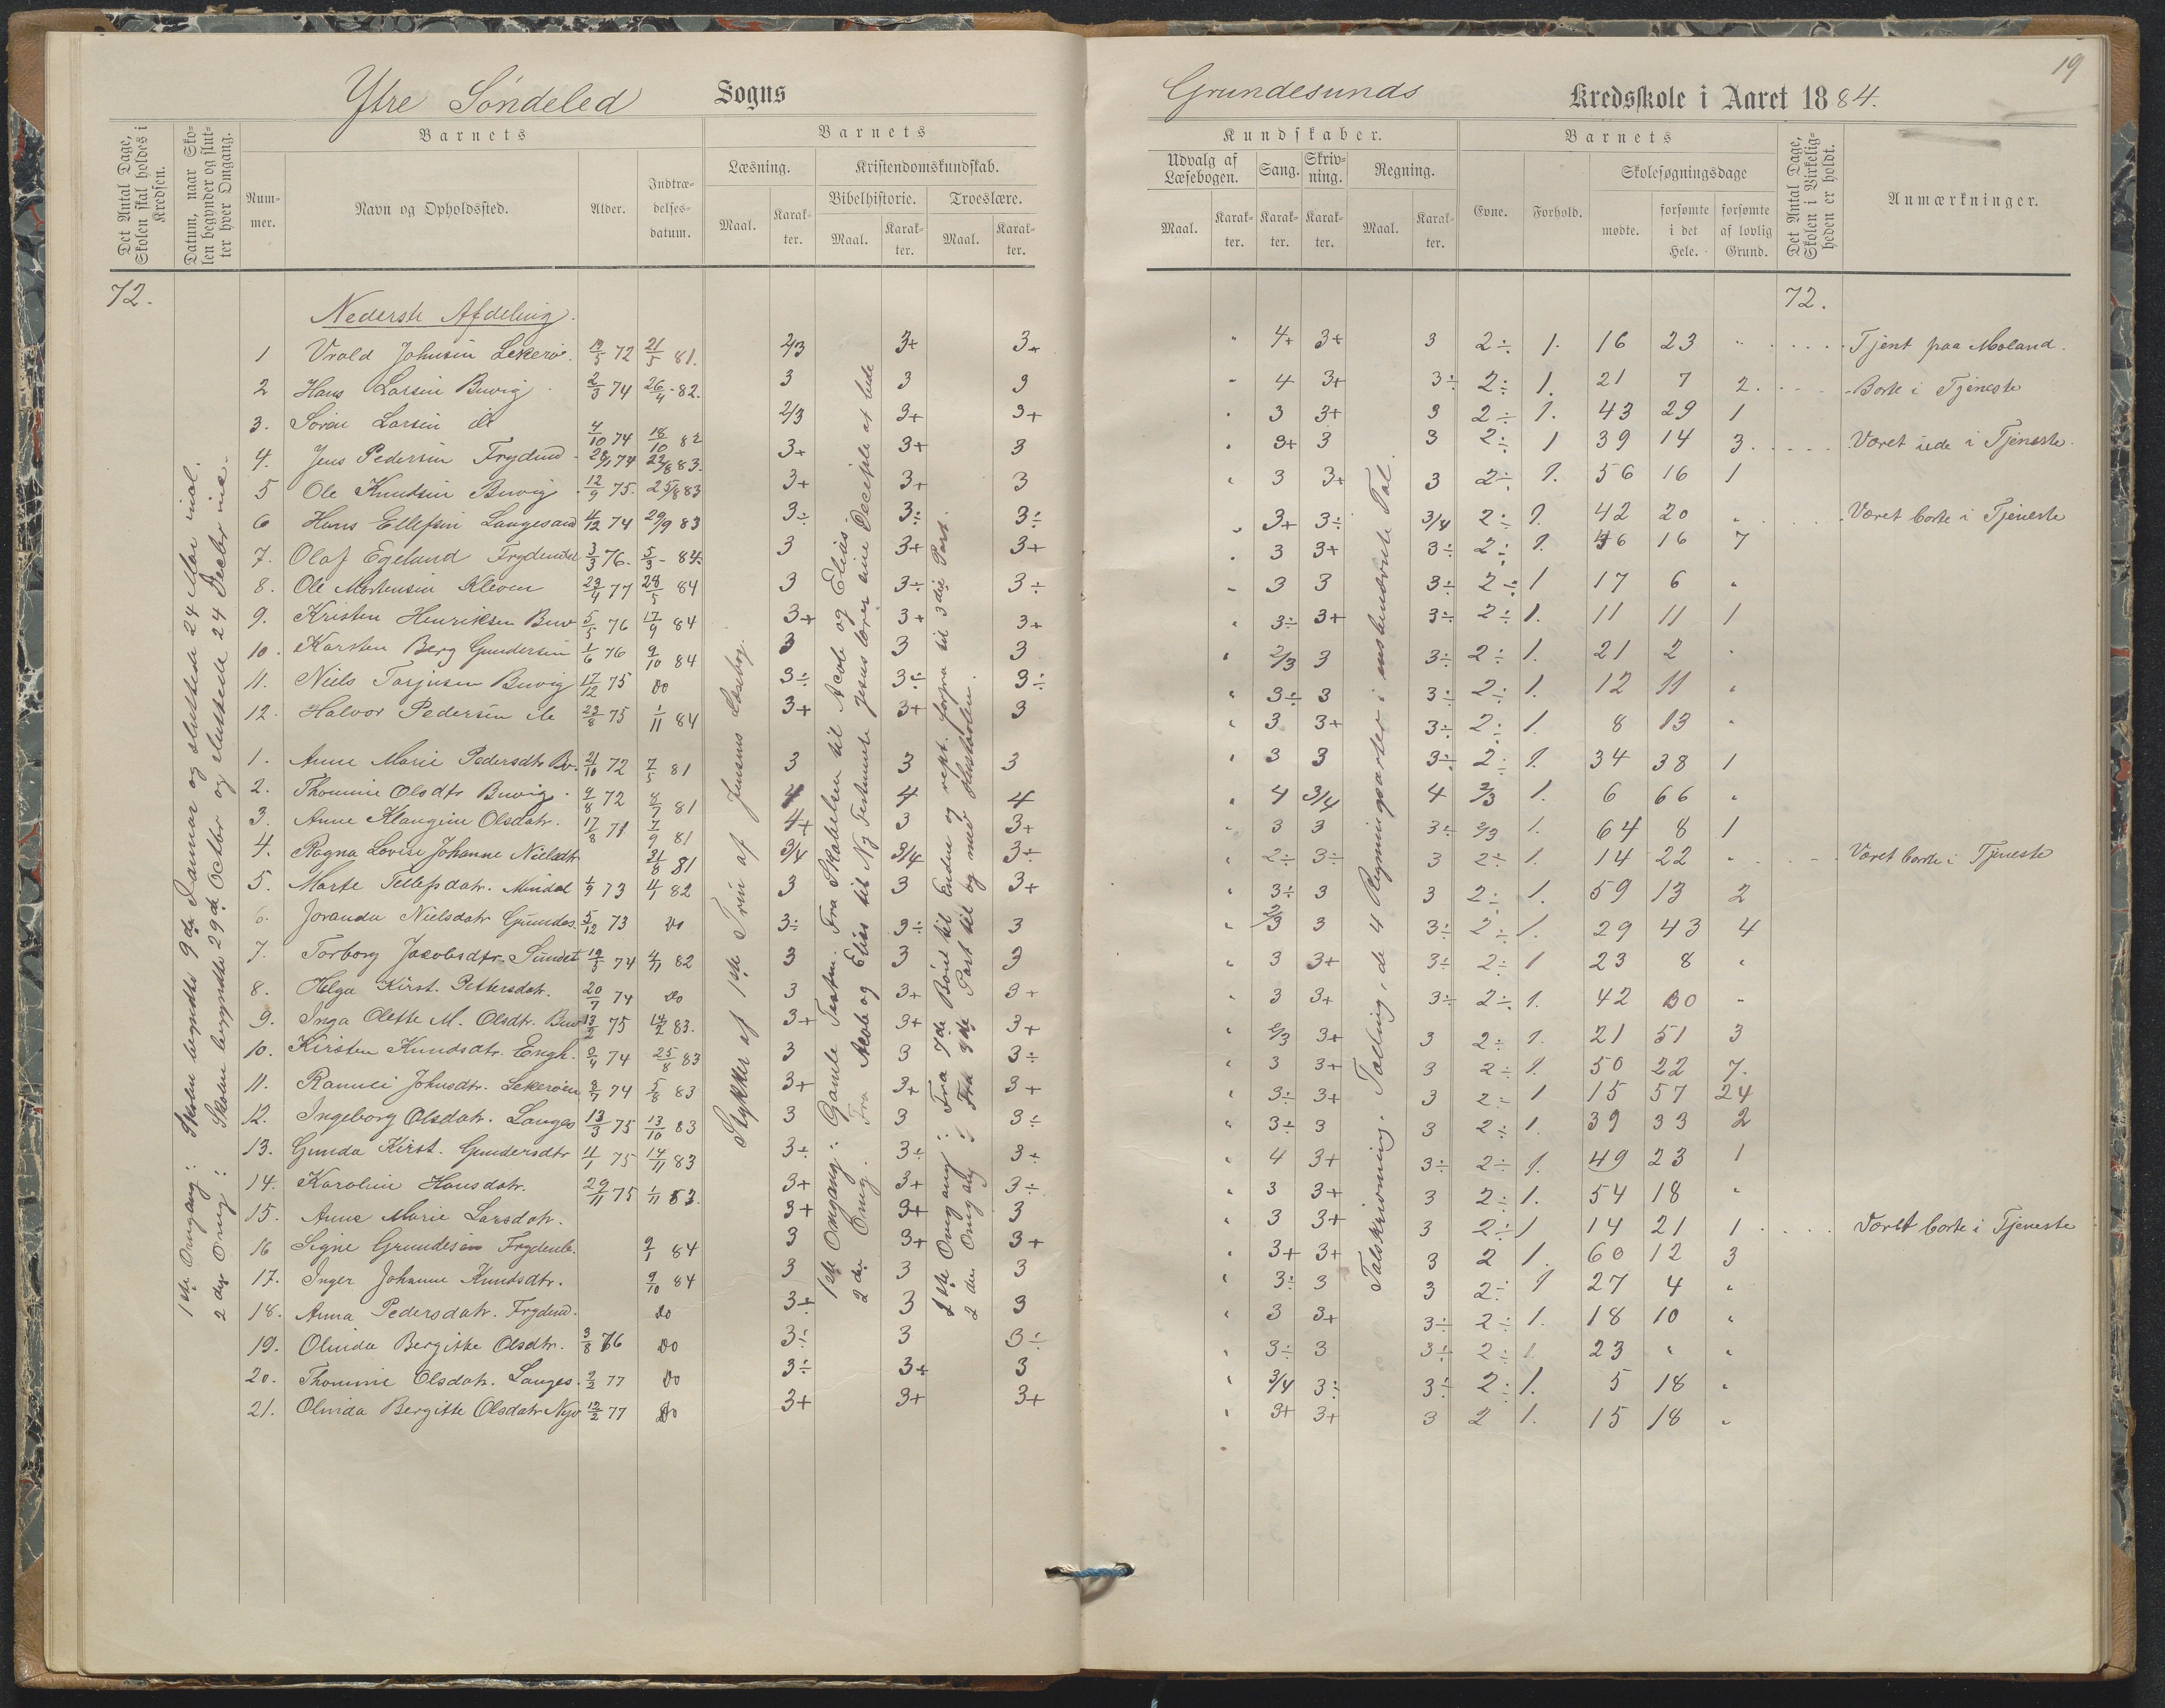 19
Ytre Söndeled Sogns
Grundesunds Kredsskole i Aaret 1884.
Det Antal Dage, Skolen skal holdes i Kredsen.
Datum, naar Skolen begynder og slutter hver Omgang.
Barnets
Nummer.
Navn og Opholdssted.
Alder.
Indtrædelsesdatum.
Barnets
Læsning.
Maal.
Karakter.
Kristendomskundskab.
Bibelhistorie.
Maal.
Karakter.
Troeslære.
Maal.
Karakter.
Kundskaber.
Udvalg af Læsebogen.
Maal.
Karakter.
Sang.
Karakter.
Skrivning.
Karakter.
Regning.
Maal.
Karakter.
Barnets
Evne.
Forhold.
Skolesøgningsdage
mødte.
forsømte i det Hele.
forsømte af lovlig Grund.
Det Antal Dage, Skolen i Virkeligheden er holdt.
Anmærkninger.
72.
72.
1ste Omgang: Skolen begyndte 9de Januar og sluttede 24 Mai incl.
2den Omg: Skolen begyndte 29de Octbr og sluttede 24 Decbr inc.
Stykker af 1ste Trin af Jensens Læsebog.
1ste Omgang: Gamle Testm. Fra Skabelsen til Acab og Elias
2den Omg. Fra Acab og Elias til Ny Testmente Jesus lærer sine Deciple at bede
1ste Omgang: Fra 7de Bøn til Enden og rept. forfra til 3die Part.
2den Omgang: Fra 3die Part til og med Hustavlen.
Talskrivning. Tælling, de 4 Regningsarter i ensbenævnte Tal.
Nederste Afdeling.
1 Vrold Johnsen Lekerøe. 19/5 72 21/5 81. 2/3 3+ 3+ " 4+ 3+ 3 2÷ 1. 16 23 " Tjent paa Moland.
2 Hans Larsen Buvig 2/3 74 26/4 82. 3 3 3 " 4 3+ 3÷ 2÷ 1. 21 7 2. Borte i Tjeneste
3. Søren Larsen do 4/10 74 18/10 82 2/3 3+ 3+ " 3 3+ 3 2÷ 1. 43 29 1
4. Jens Pedersen Frydend 28/1 74 22/8 83. 3+ 3+ 3 " 3+ 3 3 2÷ 1 39 14 3. Været ude i Tjeneste.
5 Ole Knudsen Buvig 12/9 75. 25/8 83 3+ 3+ 3 " 3 3+ 3 2÷ 1. 56 16 1
6 Hans Ellefsen Langesand 4/12 74 29/9 83 3÷ 3÷ 3÷ " 3+ 3÷ 3/4 2÷ 1. 42 20 " Været borte i Tjeneste
7. Olaf Egeland Frydendal 3/3 76. 5/3 84. 3 3+ 3+ " 3 3+ 3÷ 2÷ 1. 46 16 7
8. Ole Mortensen Kleven 23/4 77 28/5 84 3 3÷ 3÷ " 3 3 3÷ 2÷ 1 17 6 "
9. Kristen Henriksen Buv 5/5 76 17/9 84 3+ 3+ 3+ " 3÷ 3+ 3÷ 2÷ 1. 11 11 1
10. Karsten Berg Gundersen 1/6 76 9/10 84 3 3 3 " 2/3 3 3÷ 2÷ 1. 21 2 "
11. Niels Tarjusen Buvig 17/12 75 Do 3÷ 3÷ 3÷ " 3÷ 3 3÷ 2÷ 1. 12 11 "
12. Halvor Pedersen do 23/8 75 1/11 84 3+ 3+ 3 " 3 3+ 3÷ 2÷ 1. 8 13 "
1. Anne Marie Pedersdtr Bv. 21/10 72 7/5 81 3 3 3 " 3 3 3÷ 2÷ 1. 34 38 1
2. Thomine Olsdtr Buvig 9/8 72 8/7 81 4 4 4 " 4 3/4 4 2/3 1. 6 66 "
3. Anne Klangine Olsdatr. 17/8 71 7/9 81 4+ 3 3+ " 3 3 3÷ 2/3 1. 64 8 1
4. Ragna Lovise Johanne Nielsdtr 31/8 81 3/4 3/4 3÷ " 2÷ 3÷ 3 2÷ 1. 14 22 " Været borte i Tjeneste
5. Marte Tellefsdatr. Mindal 1/9 73 4/1 82 3 3 3+ " 3÷ 3 3 2÷ 1. 59 13 2
6. Joranda Nielsdatr Grundes. 5/12 73 Do 3÷ 3÷ 3 " 2/3 3 3÷ 2÷ 1. 29 43 4
7. Torborg Jacobsdtr. Sundet 19/5 74 4/11 82 3 3 3 " 3 3+ 3÷ 2÷ 1 23 8 "
8. Helga Kirst. Pettersdatr. 20/7 74 Do 3 3+ 3+ " 3 3+ 3÷ 2÷ 1. 42 30 "
9. Inga Olette M. Olsdtr. Buv 13/2 75 14/2 83. 3+ 3+ 3+ " 2/3 3+ 3 2÷ 1. 21 51 3
10. Kirsten Knudsdtr. Engh. 9/4 74 25/8 83 3 3 3÷ " 3 3+ 3 2÷ 1. 50 22 7.
11. Ramnei Johnsdtr. Lekerøen 8/7 74 5/8 83 3+ 3+ 3+ " 3÷ 3+ 3 2÷ 1 15 57 24
12. Ingeborg Olsdatr. Langes 13/3 75 13/10 83 3 3 3÷ " 3÷ 3 3 2÷ 1. 39 33 2
13. Gunda Kirst. Gundersdtr 4/1 75 14/11 83 3÷ 3÷ 3÷ " 4 3+ 3÷ 2÷ 1. 49 23 1
14. Karoline Hansdatr. 29/11 75 1/11 83. 3+ 3+ 3÷ " 3 3+ 3 2÷ 1. 54 18 "
15. Anne Marie Larsdatr. 3+ 3+ 3 " 3 3+ 3 2÷ 1 14 21 1 Været borte i Tjeneste
16 Signe Grundesen Frydenb. 9/1 84 3 3+ 3+ " 3+ 3+ 3 2 1. 60 12 3
17. Inger Johanne Knudsdtr. 9/10 84 3 3 3 " 3÷ 3 3 2÷ 1 27 4 "
18. Anna Pedersdatr. Frydend. Do 3÷ 3 3 " 3 3+ 3÷ 2÷ 1. 18 10 "
19. Olinda Bergitte Olsdtr. 3/8 76 Do 3÷ 3 3÷ " 3÷ 3 3÷ 2÷ 1. 23 " "
20. Thomine Olsdatr. Langes. 2/2 77 Do 3÷ 3+ 3 " 3/4 3÷ 3÷ 2÷ 1. 5 18 "
21. Olinda Bergitte Olsdatr Nyv 12/2 77 Do 3+ 3+ 3+ " 3+ 3+ 3 2 1. 15 18 "